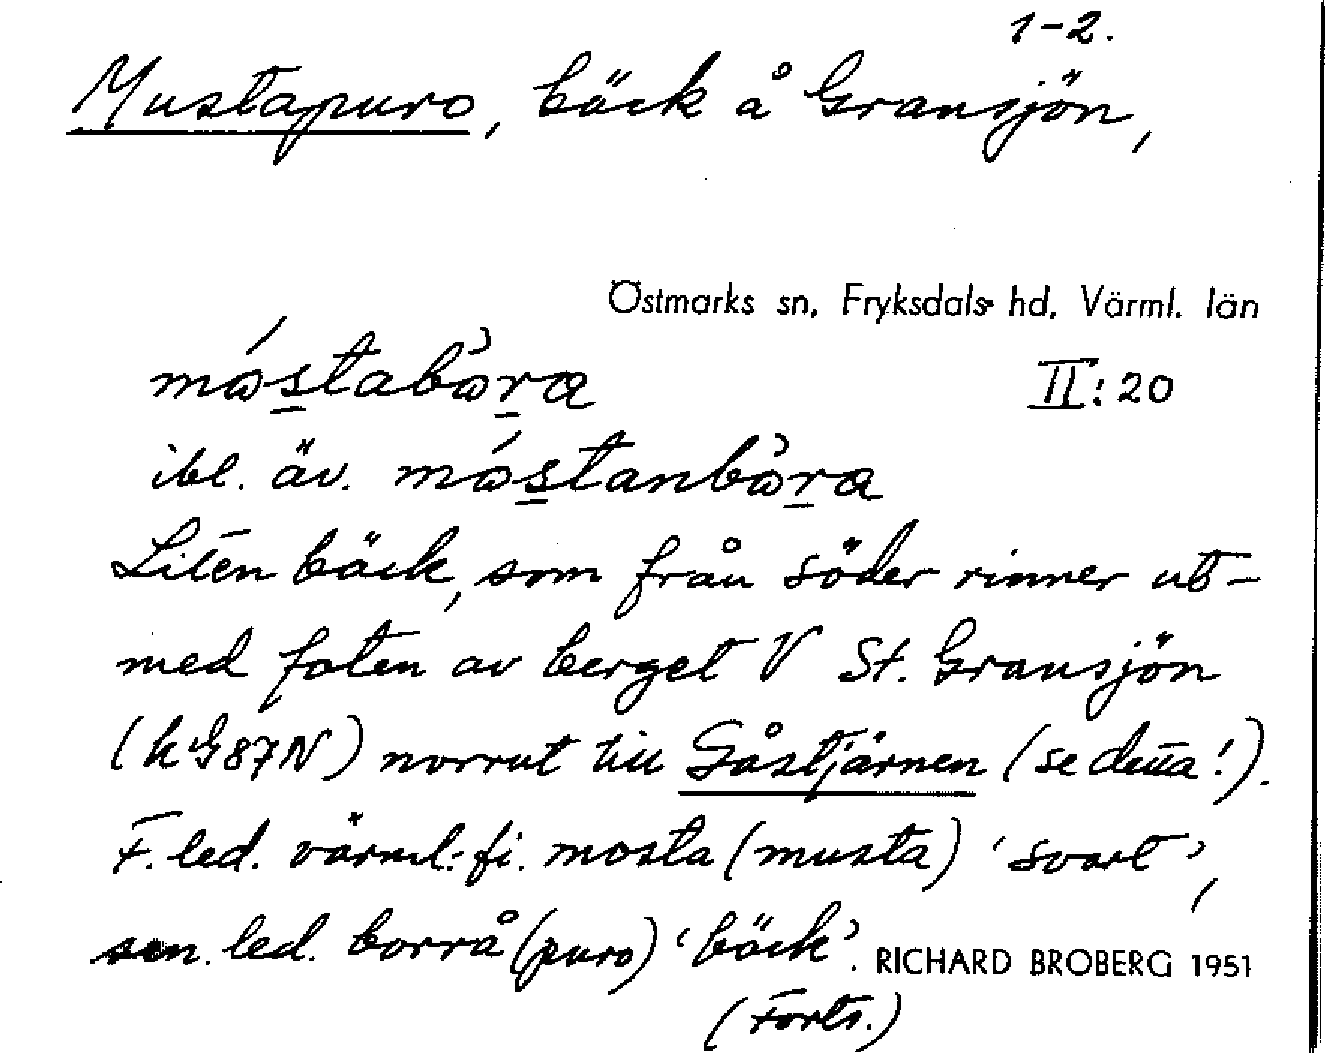 1-2.
Mustapuro, bäck å Gransjön,
Östmarks sn, Fryksdals hd, Värml. län
mɷ́stabɷ̀ra
II:20
ibl. äv. mɷ́stanbɷ̀ra
Liten bäck, som från söder rinner ut-
med foten av berget V St. Gransjön
(kG87N) norrut till Gåstjärnen (se detta!).
F. led. värml.-fi. mosta (musta) 'svart',
sen. led. borrå (puro) 'bäck'. RICHARD BROBERG 1951
(Forts.)